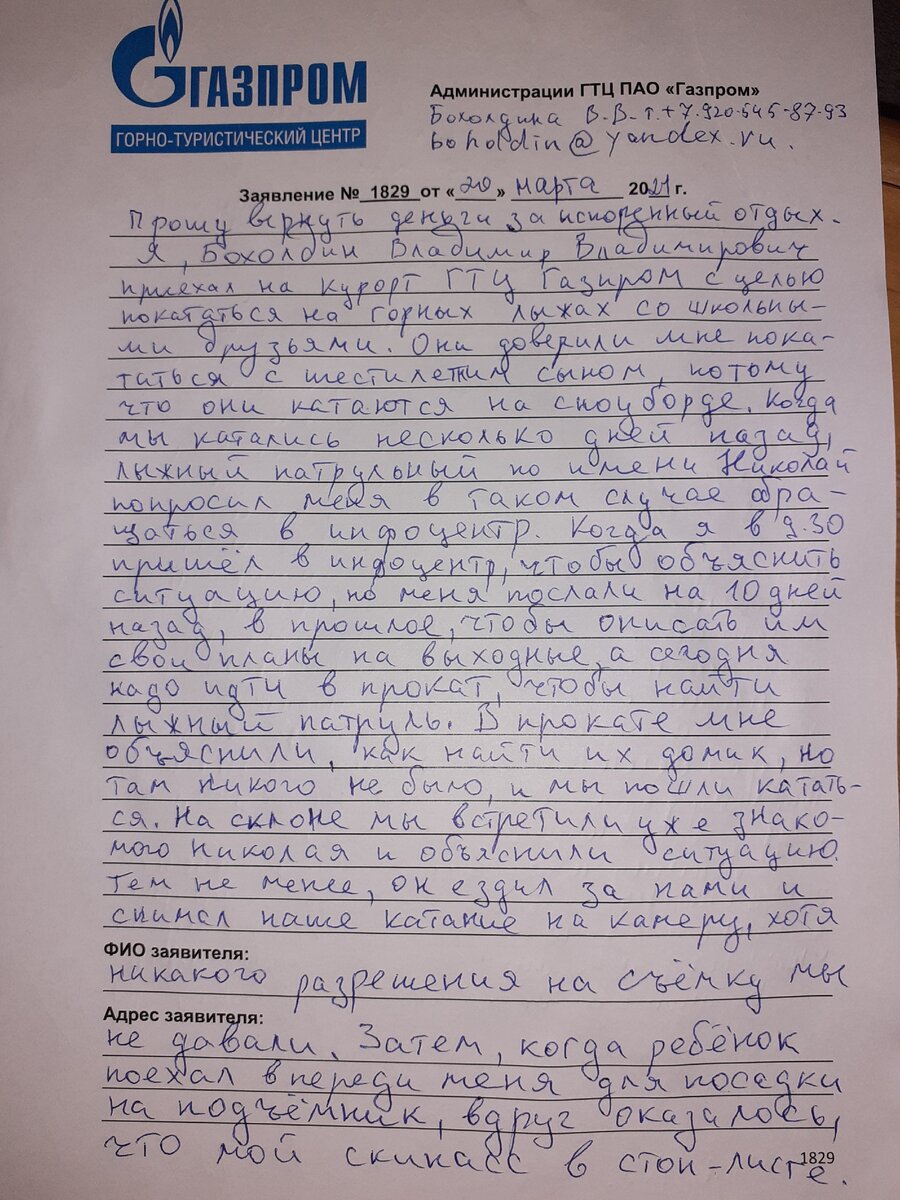 ГАЗПРОМ
ГОРНО-ТУРИСТИЧЕСКИЙ ЦЕНТР
Администрации ГТЦ ПАО «Газпром»
Бохолдина В.В. т.+7.920-545-87-93
boholdin@yandex.ru.
Заявление № 1829 от «20» марта 2021 г.
Прошу вернуть деньги за искоренный отдых.
Я, Бохолдин Владимир Владимирович
приехал на курорт ГТЦ Газпром с целью
покататься на горных лыжах со школьны-
ми друзьями. Они доверили мне пока-
таться с шестилетним сыном, потому
что они катаются на сноуборде. Когда
мы катались несколько дней назад,
лыжный патрульный по имени Николай
попросил меня в таком случае обра-
щаться в инфоцентр. Когда я в 9.30
пришёл в инфоцентр, чтобы объяснить
ситуацию, но меня послали на 10 дней
назад, в прошлое, чтобы описать им
свои планы на выходные, а сегодня
надо идти в прокат, чтобы найти
лыжный патруль. В прокате мне
объяснили, как найти их домик, но
там никого не было, и мы пошли катать-
ся. На склоне мы встретили уже знако-
мого Николая и объяснили ситуацию.
Тем не менее, он ездил за нами и
снимал наше катание на камеру, хотя
ФИО заявителя:
никакого разрешения на съёмку мы
Адрес заявителя:
не давали. Затем, когда ребёнок
поехал впереди меня для посадки
на подъёмник, вдруг оказалось,
что мой скипасс в стоп-листе.
1829